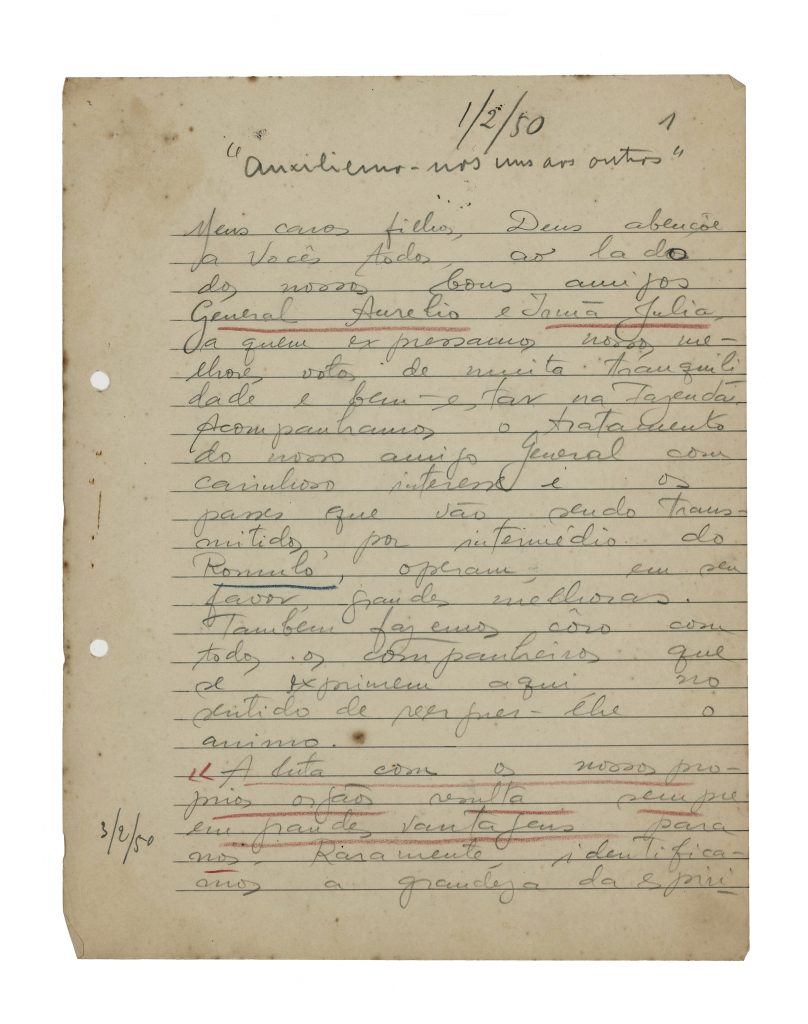 1/2/50 1
"Auxiliemo-nos uns aos outros"
Meus caros filhos, Deus abençôe
a Vocês todos, ao lado
dos nossos bons amigos
General Aurelio e Irmã Julia,
a quem expressamos nossos me-
lhores votos de muita tranquili
dade e bem-estar na Fazenda.
Acompanhamos o tratamento
do nosso amigo General com
carinhoso interesse e os
passes que vão sendo trans-
mitidos por intermédio do
Romulo, operam, em seu
favor, grandes melhoras.
Também fazemos côro com
todos os companheiros que
se exprimem aqui no
sentido de reerguer-lhe o
animo.
"A luta com os nossos pro-
prios orgãos resulta sempre
em grandes vantagens para
nós Raramente, identifica-
mos a grandeza da espiri
3/2/50